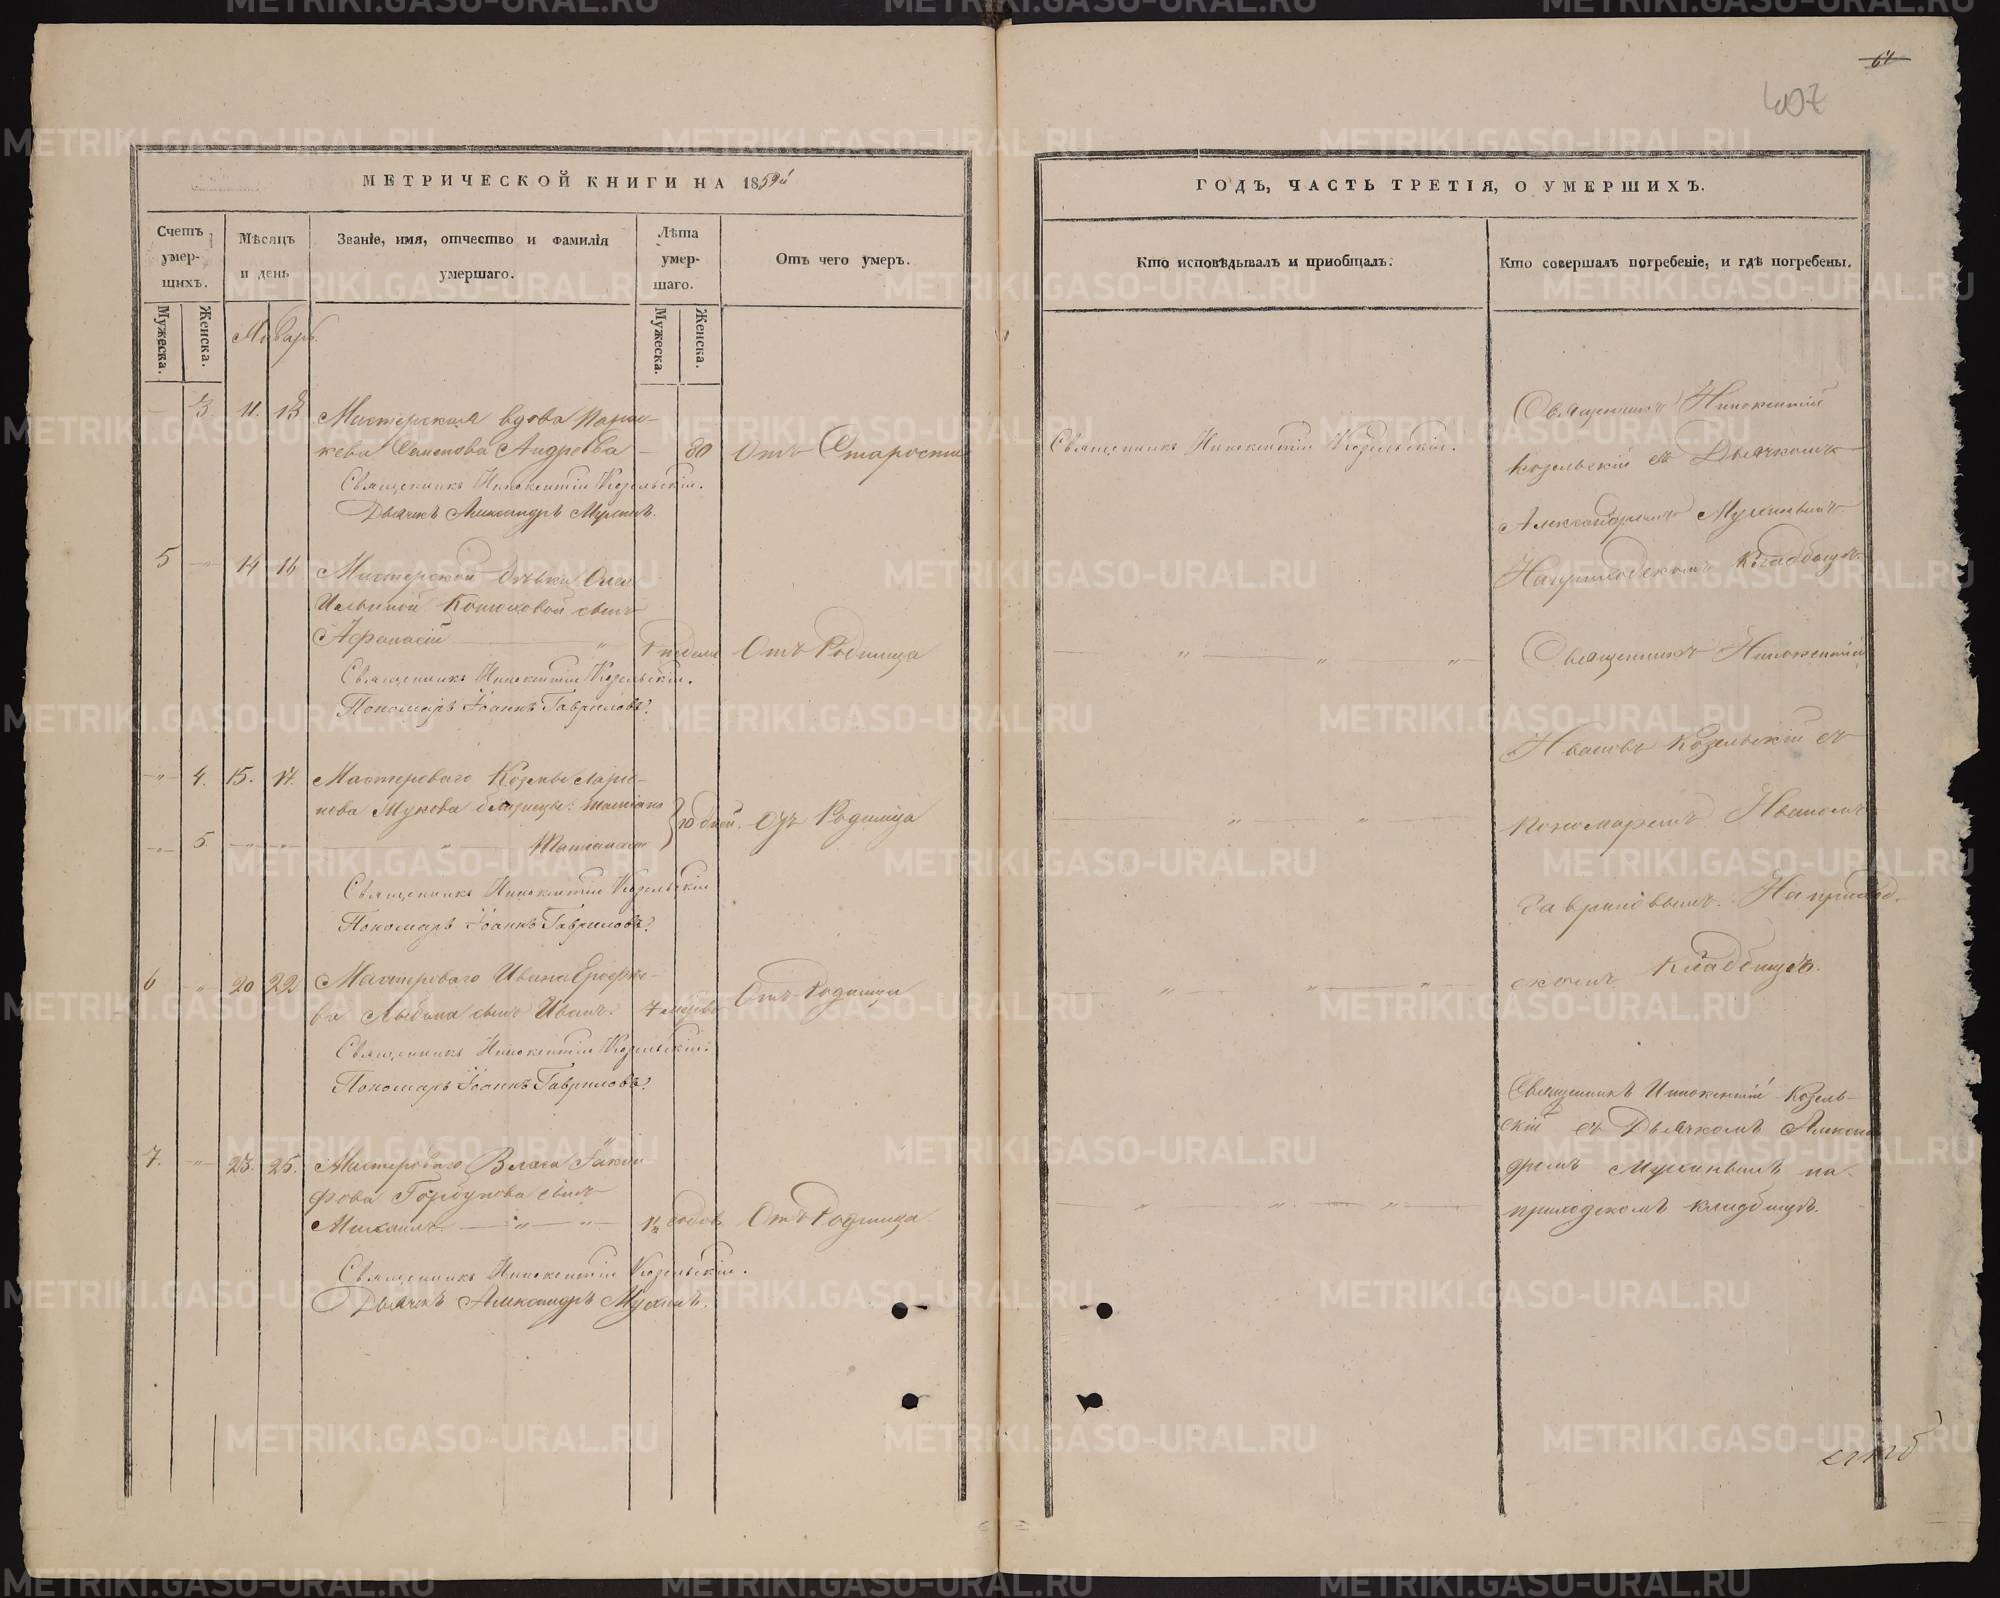 64
407
МЕТРИЧЕСКОЙ КНИГИ НА 1859й
ГОДЪ, ЧАСТЬ ТРЕТІЯ, О УМЕРШИХЪ.
Счетъ умер-шихъ.
Мѣсяцъ и день
Званіе, имя, отчество и фамилія умершаго.
Лѣта умер-шаго.
Отъ чего умеръ.
Кто исповѣдывалъ и пріобщалъ.
Кто совершалъ погребеніе, и гдѣ погребены.
Мужеска.
Женска.
Мужеска.
Женска.
Январь.
3 11. 13 Мастерская вдова Парас-
кева Семенова Андреева 80 отъ Старости
Священникъ Иннокентій Козельскій.
Дьячекъ Александръ Мухинъ.
Священникъ Иннокентій Козельскій.
Священникъ Иннокентій
Козельскій съ Дьячкомъ
Александромъ Мухинымъ
На приходскомъ кладбищѣ.
5 14 16 Мастерской дѣвки
Ильиной сынъ
Афанасій недѣли Отъ Родимца
Священникъ Иннокентій Козельскій.
Пономарь Іоаннъ Гавриловъ.
Священникъ Иннокентій
Козельскій съ
4. 15. 17. Мастероваго Козьмы Ларіо-
нова близнецы: Татіана
5. Татіана 10 дней. Отъ Родимца
Священникъ Иннокентій Козельскій
Пономарь Іоаннъ Гавриловъ.
пономаремъ Иваномъ
Гавриловымъ. На приход-
скомъ кладбищѣ.
6 20 22 Мастероваго Ивана Ерофѣе-
ва сынъ Иванъ. Отъ Родимца
Священникъ Иннокентій Козельскій.
Пономарь Іоаннъ Гавриловъ.
7. 23. 25. Мастероваго
Горбунова сынъ
Михаилъ. Отъ Родимца
Священникъ Иннокентій Козельскій.
Дьячекъ Александръ Мухинъ.
Священникъ Иннокентій Козель-
скій съ Дьячкомъ Алексан-
дромъ Мухинымъ на
приходскомъ кладбищѣ.
METRIKI.GASO-URAL.RU